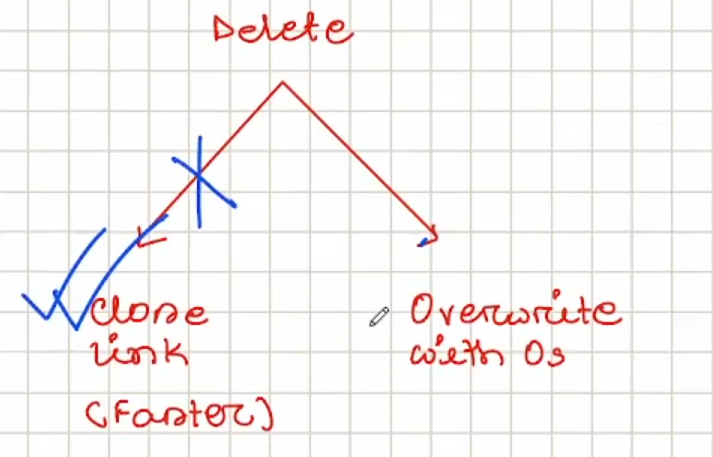 Delete
Close
Link
(Faster)
Overwrite
with 0s